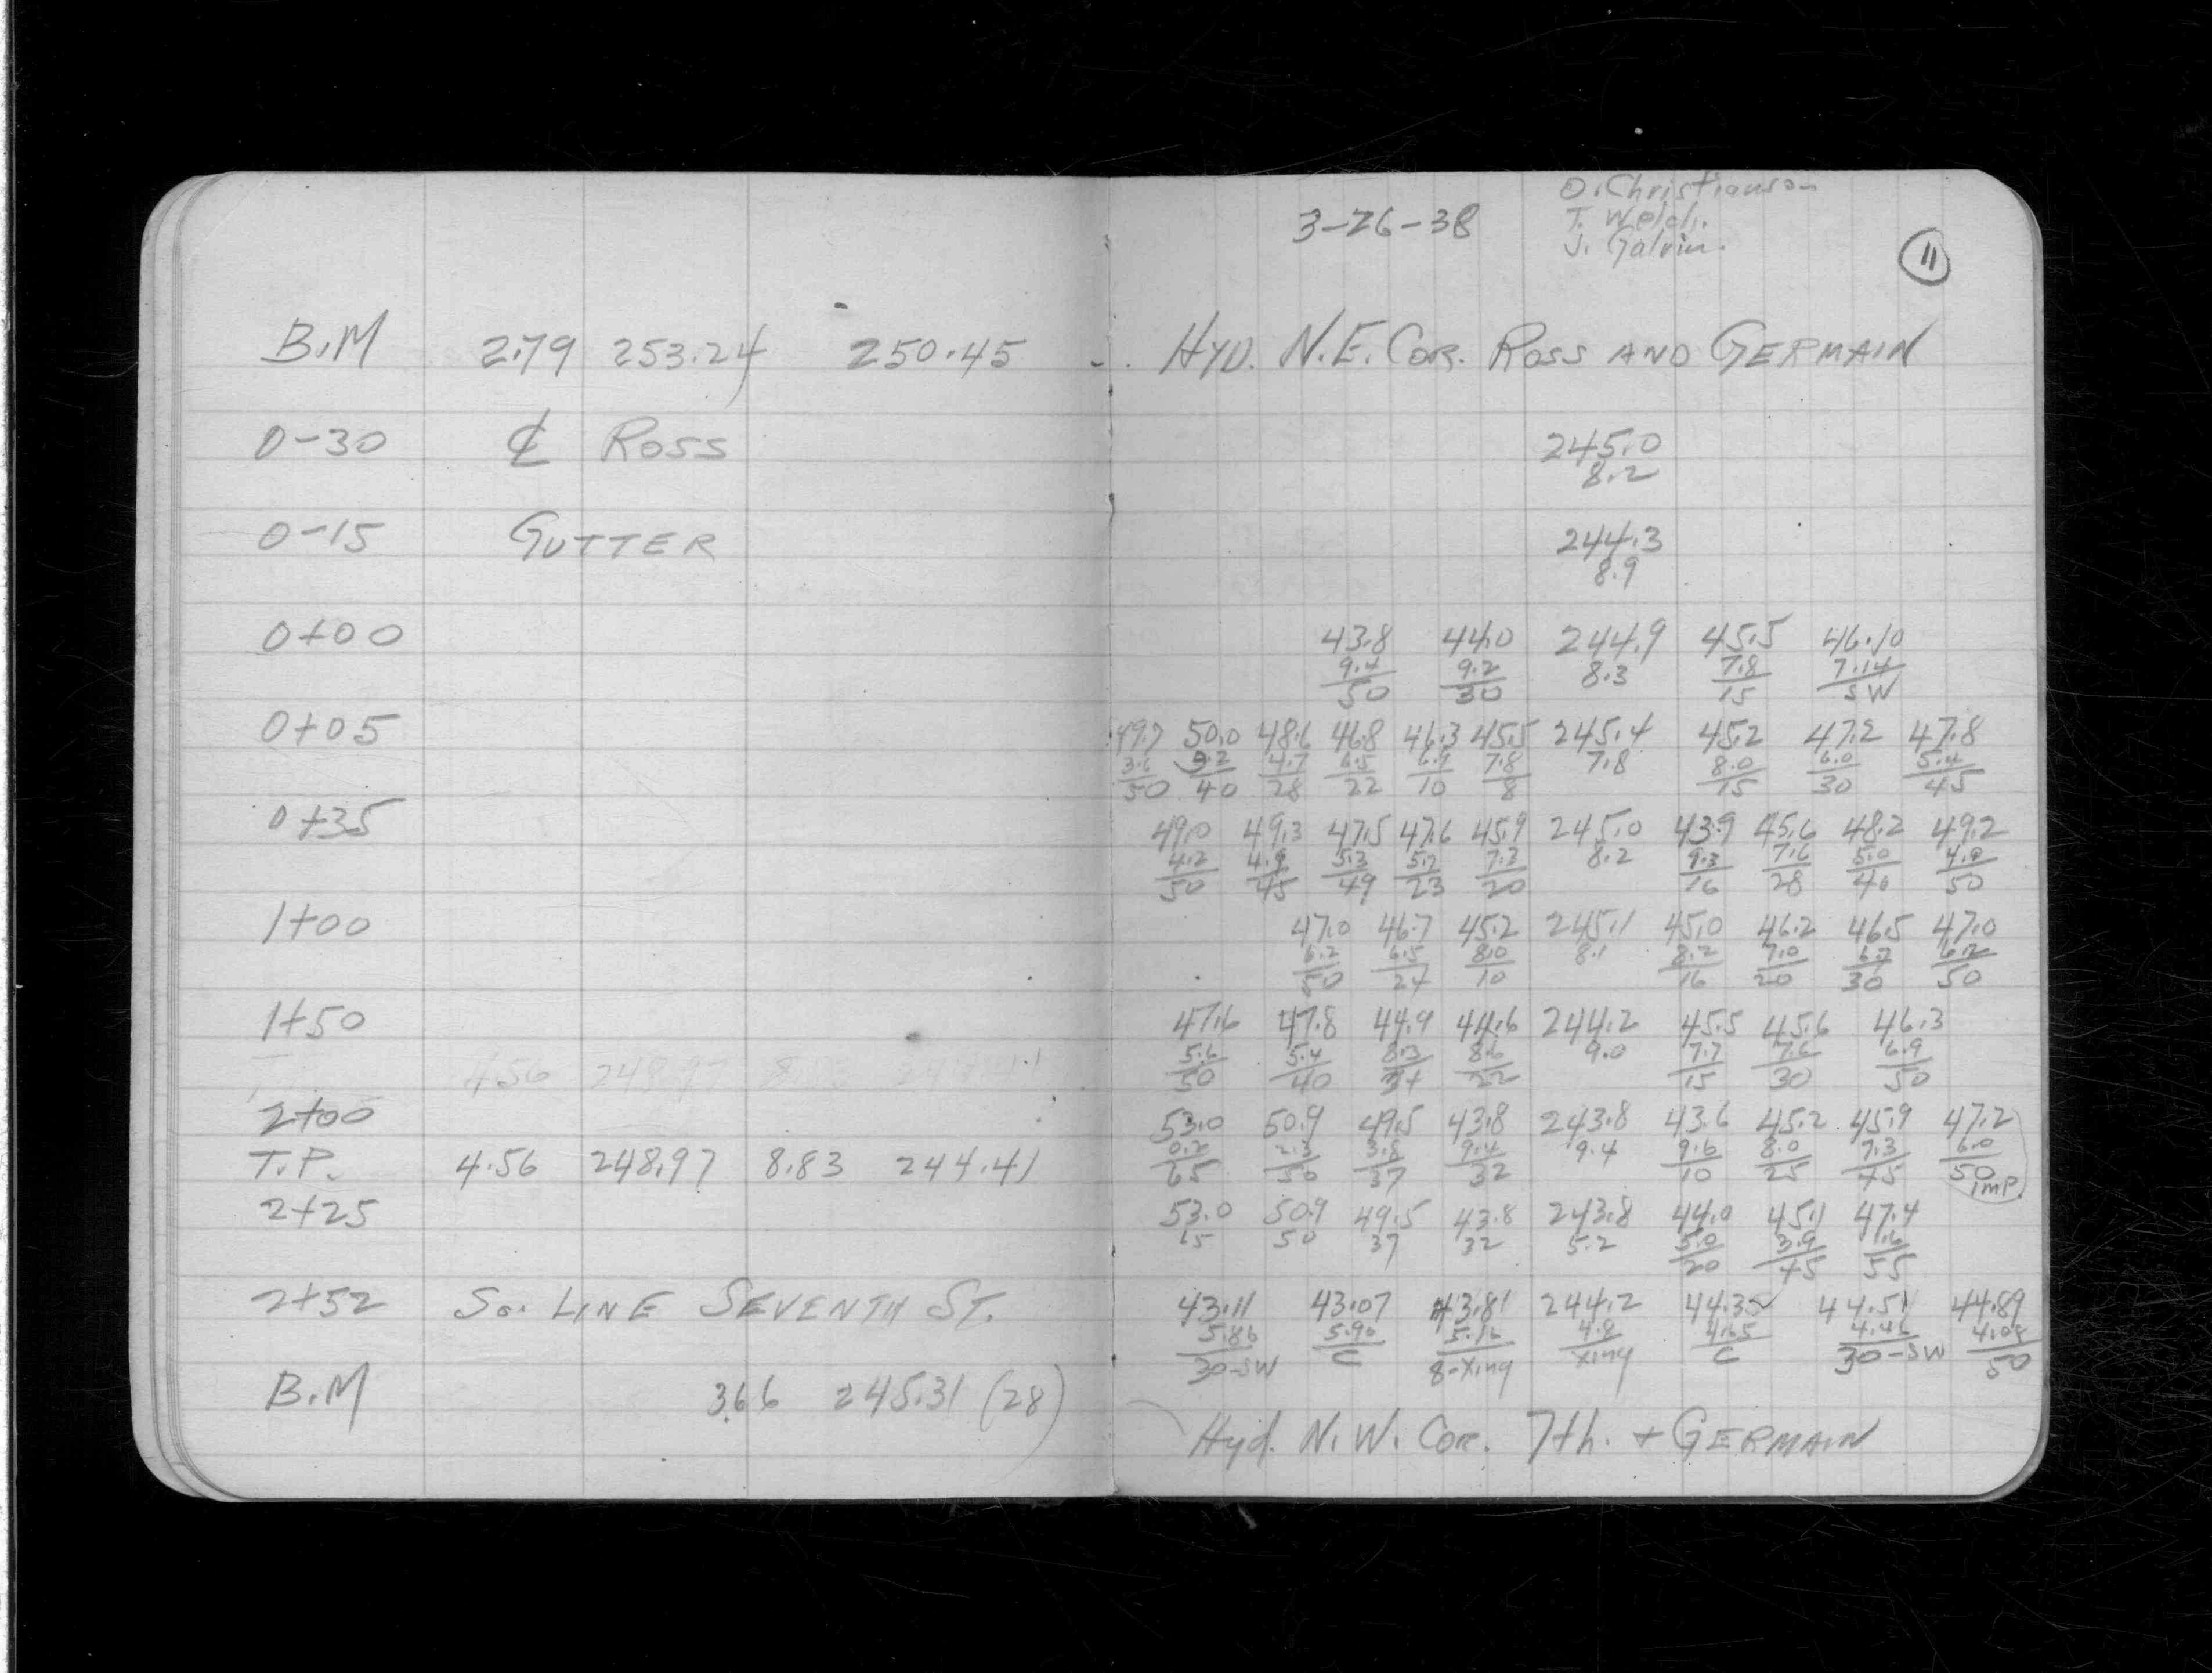 3-26-38
O. Christianson
T. Welch.
J. Galvin.
11
B.M 2.79 253.24 250.45 Hyd. N.E. Cor. Ross and Germain
0-30 ℄ Ross 245.0
8.2
0-15 Gutter 244.3
8.9
0+00 43.8 44.0 244.9 45.5 46.10
9.4 9.2 8.3 7.8 7.14
50 30 15 SW
0+05 49.7 50.0 48.6 46.8 46.3 45.5 245.4 45.2 47.2 47.8
3.6 3.2 4.7 6.5 6.9 7.8 7.8 8.0 6.0 5.4
50 40 28 22 10 8 15 30 45
0+35 49.0 49.3 47.5 47.6 45.9 245.0 43.9 45.6 48.2 49.2
4.2 4.9 5.3 5.7 7.3 8.2 9.3 7.6 5.0 4.0
50 45 49 23 20 16 28 40 50
1+00 47.0 46.7 45.2 245.1 45.0 46.2 46.5 47.0
6.2 6.5 8.0 8.1 8.2 7.0 6.7 6.2
50 24 10 16 20 30 50
1+50 47.6 47.8 44.9 44.6 244.2 45.5 45.6 46.3
5.6 5.4 8.3 8.6 9.0 7.7 7.6 6.9
50 40 34 22 15 30 50
4.56 248.97
2+00 53.0 50.9 49.5 43.8 243.8 43.6 45.2 45.9 47.2
0.2 2.3 3.8 9.4 9.4 9.6 8.0 7.3 6.0
65 50 37 32 10 25 45 50
imp.
T.P. 4.56 248.97 8.83 244.41
2+25 53.0 50.9 49.5 43.8 243.8 44.0 45.1 47.4
65 50 37 32 5.2 5.0 3.9 1.6
20 45 55
2+52 So. Line Seventh St. 43.11 43.07 43.81 244.2 44.32 44.51 44.89
5.86 5.90 5.16 4.8 4.65 4.46 4.08
30-SW C 8-Xing Xing C 30-SW 50
B.M 3.66 245.31 (28) Hyd. N.W. Cor. 7th. + Germain